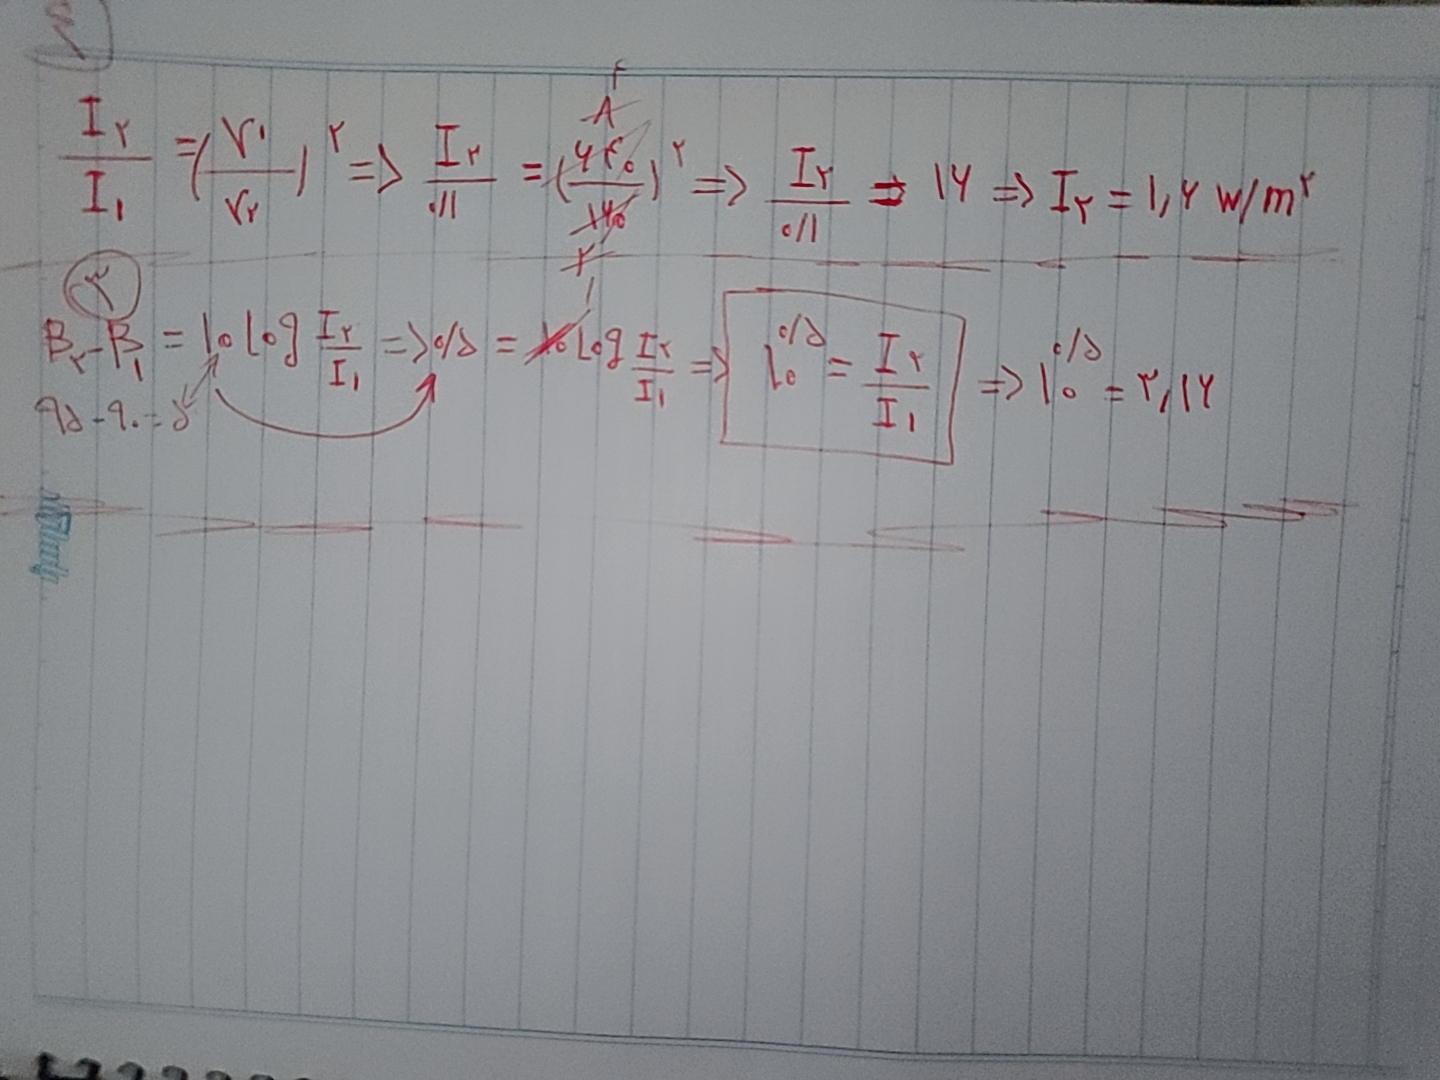 I۲/I۱ = (r۱/r۲)۲ => I۲/۰/۱ = (۶۴۰/۱۶۰)۲ => I۲/۰/۱ = ۱۶ => I۲ = ۱,۶ w/m۲
۸ ۴
۲ ۱
۲
B۲-B۱ = ۱۰ log I۲/I۱ => ۰/۵ = ۱۰ log I۲/I۱ => ۱۰^۰/۵ = I۲/I۱ => ۱۰^۰/۵ = ۳,۱۶
۹۵-۹۰=۵